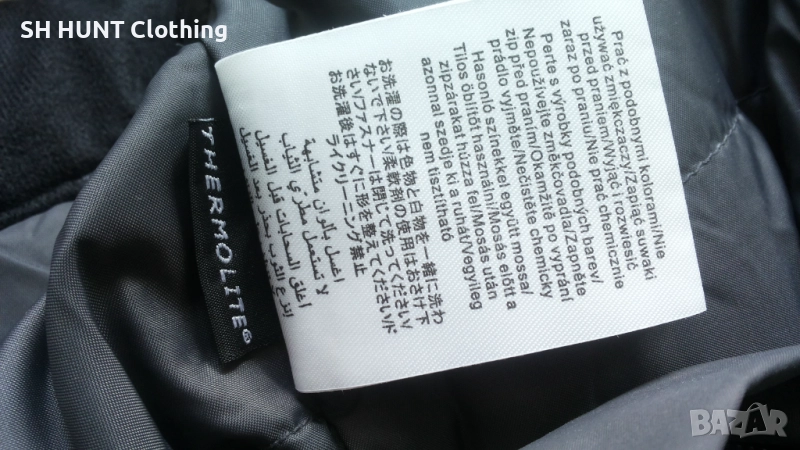 SH HUNT Clothing
Prać z podobnymi kolorami/Nie
używać zmiękczaczy/Zapiąć suwaki
przed praniem/Wyjąć i rozwiesić
zaraz po praniu/Nie prać chemicznie
Perte s výrobky podobných barev/
Nepoužívejte změkčovadla/Zapněte
zip před praním/Okamžitě po vyprání
prádlo vyjměte/Nečistěte chemicky
Hasonló színekkel együtt mossa/
Tilos öblítőt használni/Mosás előtt a
zipzárakat húzza fel/Mosás után
azonnal szedje ki a ruhát/Vegyileg
nem tisztítható
お洗濯の際は色物と白物を一緒に洗わ
ないで下さい/柔軟剤の使用はおさけ下
さい/ファスナーは閉じて洗ってください/
お洗濯後はすぐに形を整えてください/ド
ライクリーニング禁止
اغسل بالوان متشابهة
لا تستعمل مطري الثياب
اغلق السحابات قبل الغسيل
انزع الثوب بحذر بعد الغسيل
THERMOLITE®
BAZAR